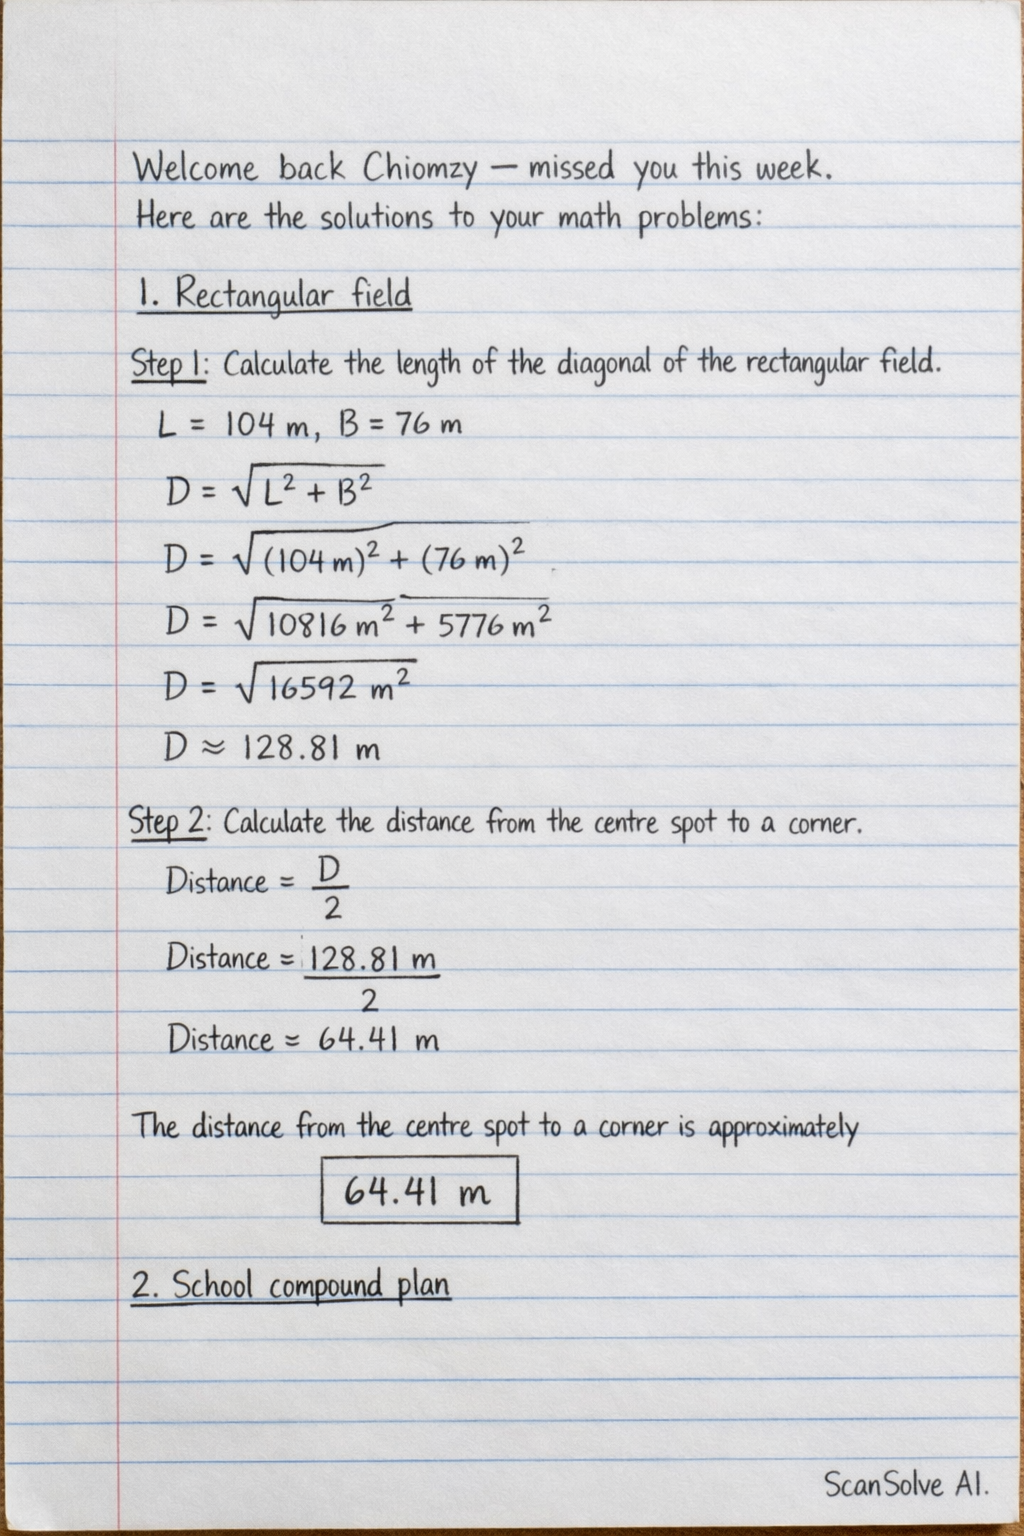 Welcome back Chiomzy — missed you this week.
Here are the solutions to your math problems:
1. Rectangular field
Step 1: Calculate the length of the diagonal of the rectangular field.
L = 104 m, B = 76 m
D = √L² + B²
D = √(104 m)² + (76 m)²
D = √10816 m² + 5776 m²
D = √16592 m²
D ≈ 128.81 m
Step 2: Calculate the distance from the centre spot to a corner.
Distance = D/2
Distance = 128.81 m/2
Distance ≈ 64.41 m
The distance from the centre spot to a corner is approximately
64.41 m
2. School compound plan
ScanSolve AI.